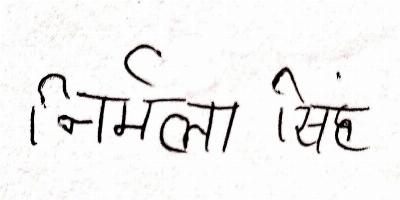 निर्मला सिंह